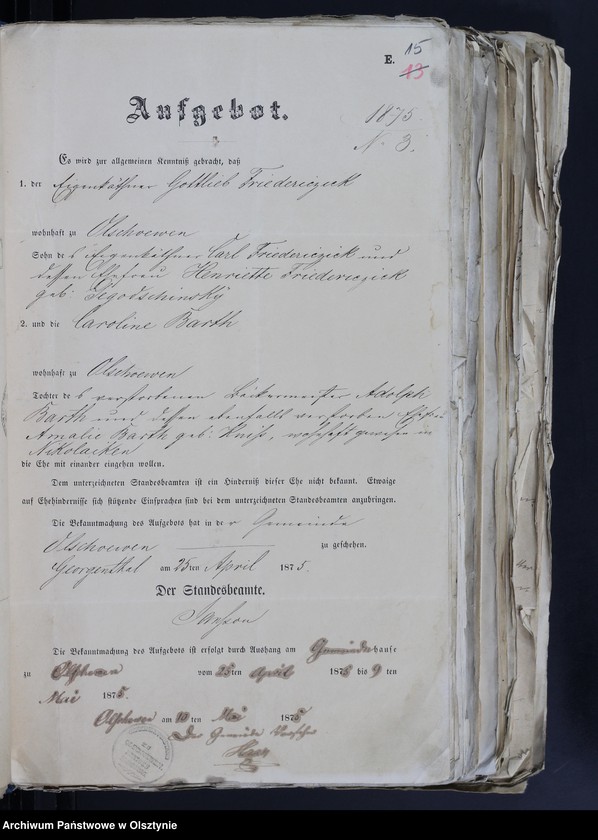 E. 15
13
Aufgebot.
1875.
N. 3.
Es wird zur allgemeinen Kenntniß gebracht, daß
1. der Eigenkäthner Gottlieb Friedericzick
wohnhaft zu Olschoewen
Sohn des Eigenkäthner Carl Friedericzick und
dessen Ehefrau Henriette Friedericzick
geb:
2. und die Caroline Barth
wohnhaft zu Olschoewen
Tochter des verstorbenen Bäckermeister Adolph
Barth und dessen ebenfalls verstorben
Amalie Barth geb: wohnhaft gewesen in
Nikolaiken
die Ehe mit einander eingehen wollen.
Dem unterzeichneten Standesbeamten ist ein Hinderniß dieser Ehe nicht bekannt. Etwaige
auf Ehehindernisse sich stützende Einsprachen sind bei dem unterzeichneten Standesbeamten anzubringen.
Die Bekanntmachung des Aufgebots hat in der Gemeinde
Olschoewen zu geschehen.
Georgenthal am 25ten April 1875.
Der Standesbeamte.
Die Bekanntmachung des Aufgebots ist erfolgt durch Aushang am Gemeindehause
zu vom 25ten April 1875 bis 9 ten
Mai 1875.
am 10 ten Mai 1875
Der Gemeinde Vorsteher
Archiwum Państwowe w Olsztynie